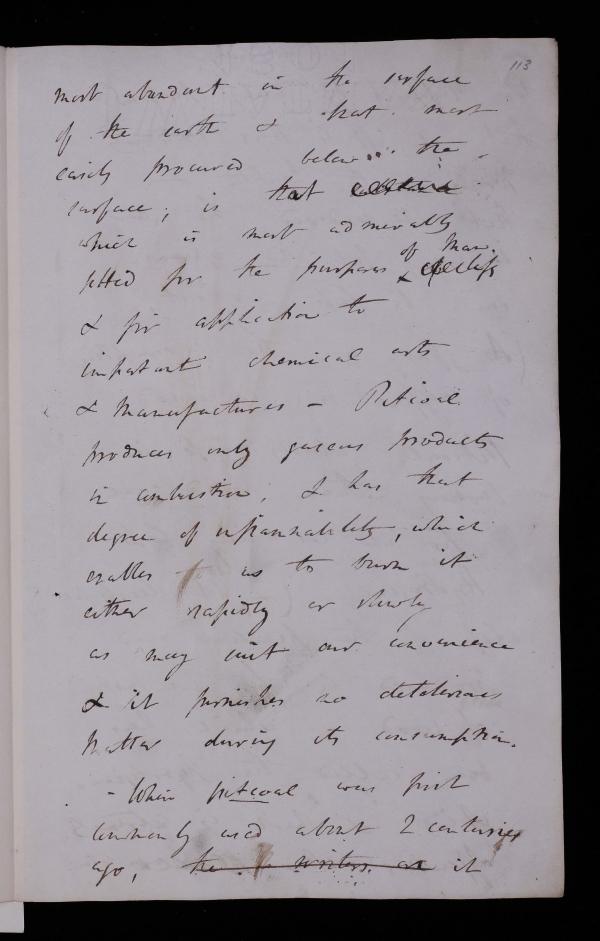 113
most abundant in the surface
of the earth & that most
easily procured below the
surface; is that
which is most admirably
fitted for the purposes of Man
& for application to
important chemical arts
& Manufactures - Pitcoal
produces only gaseous products
in combustion, & has that
degree of inflammability, which
enables us to burn it
either rapidly or slowly
as may suit our convenience
& it furnishes no deleterious
Matter during its consumption.
- When pitcoal was first
commonly used about 2 centuries
ago, the writers on it